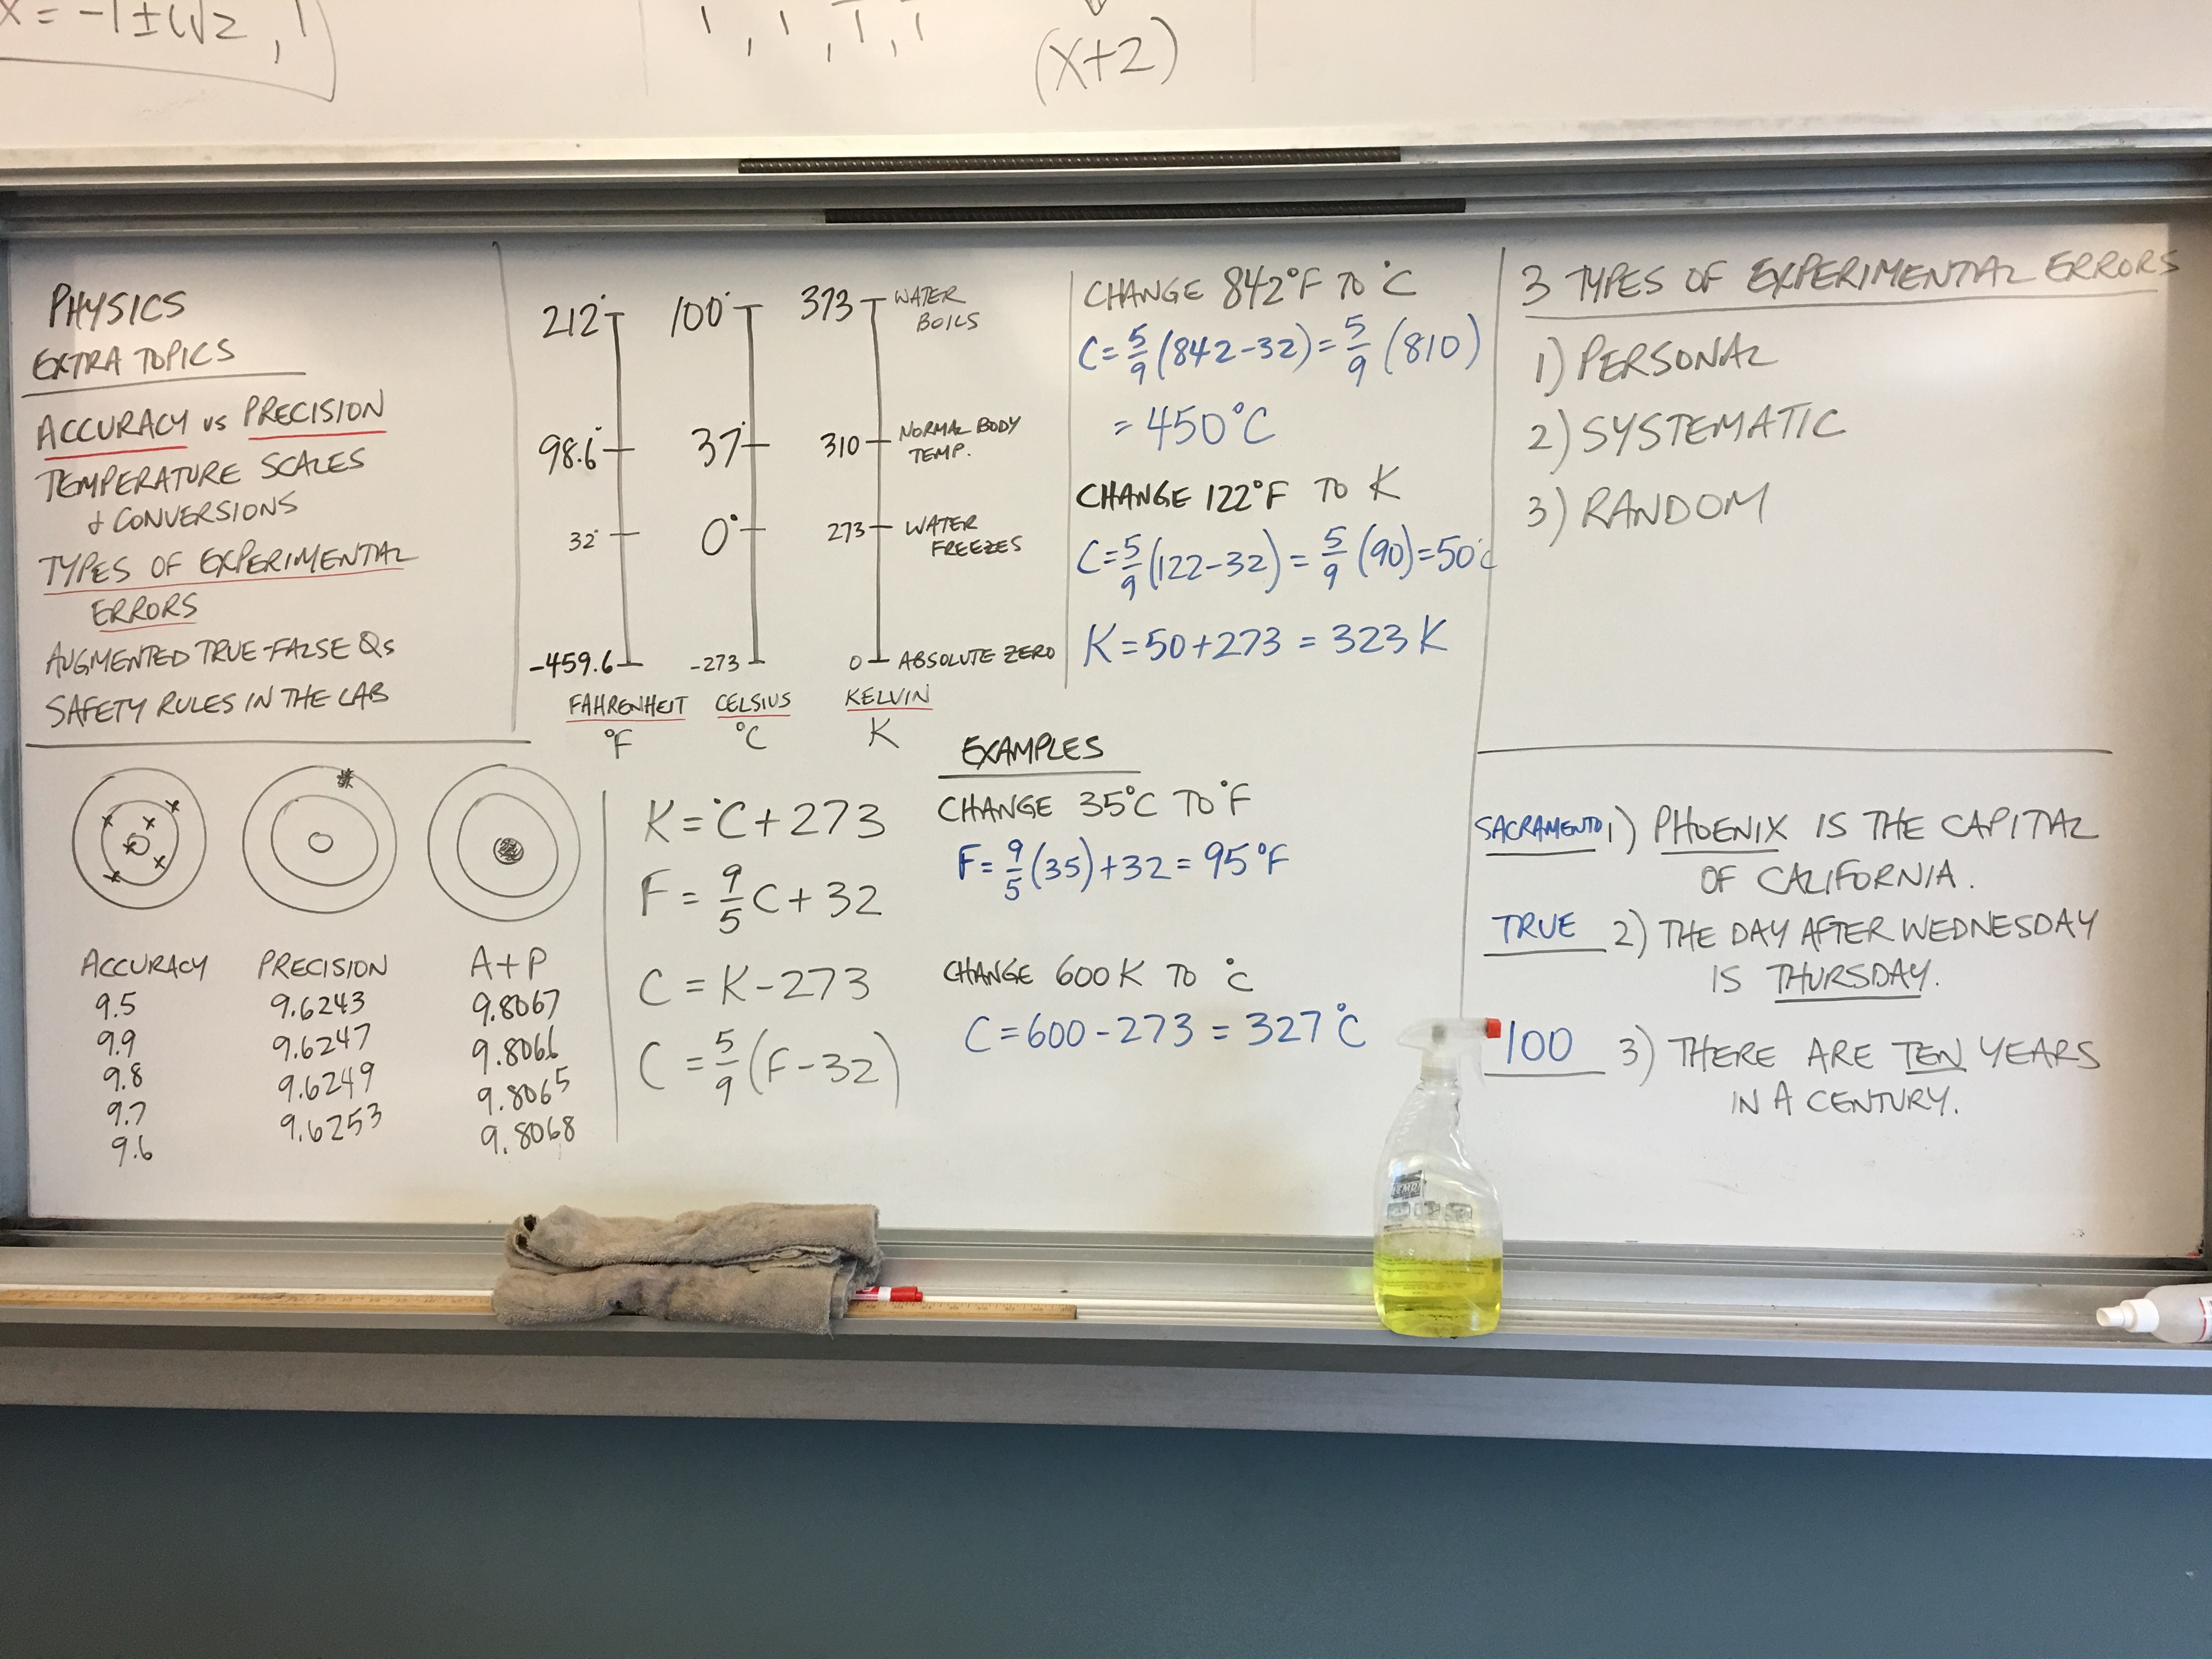 x = -1 ± i√2 , 1
(x+2)
PHYSICS
EXTRA TOPICS
ACCURACY vs PRECISION
TEMPERATURE SCALES
& CONVERSIONS
TYPES OF EXPERIMENTAL
ERRORS
AUGMENTED TRUE-FALSE Qs
SAFETY RULES IN THE LAB
212° 100° 373 WATER
BOILS
98.6° 37° 310 NORMAL BODY
TEMP.
32° 0° 273 WATER
FREEZES
-459.6 -273 0 ABSOLUTE ZERO
FAHRENHEIT CELSIUS KELVIN
°F °C K
CHANGE 842°F TO °C
C = 5/9 (842-32) = 5/9 (810)
= 450°C
CHANGE 122°F TO K
C = 5/9 (122-32) = 5/9 (90) = 50°C
K = 50+273 = 323 K
3 TYPES OF EXPERIMENTAL ERRORS
1) PERSONAL
2) SYSTEMATIC
3) RANDOM
ACCURACY PRECISION A+P
9.5 9.6243 9.8067
9.9 9.6247 9.8066
9.8 9.6249 9.8065
9.7 9.6253 9.8068
9.6
K = °C + 273
F = 9/5 C + 32
C = K - 273
C = 5/9 (F-32)
EXAMPLES
CHANGE 35°C TO °F
F = 9/5 (35) + 32 = 95°F
CHANGE 600 K TO °C
C = 600 - 273 = 327°C
SACRAMENTO 1) PHOENIX IS THE CAPITAL
OF CALIFORNIA.
TRUE 2) THE DAY AFTER WEDNESDAY
IS THURSDAY.
100 3) THERE ARE TEN YEARS
IN A CENTURY.